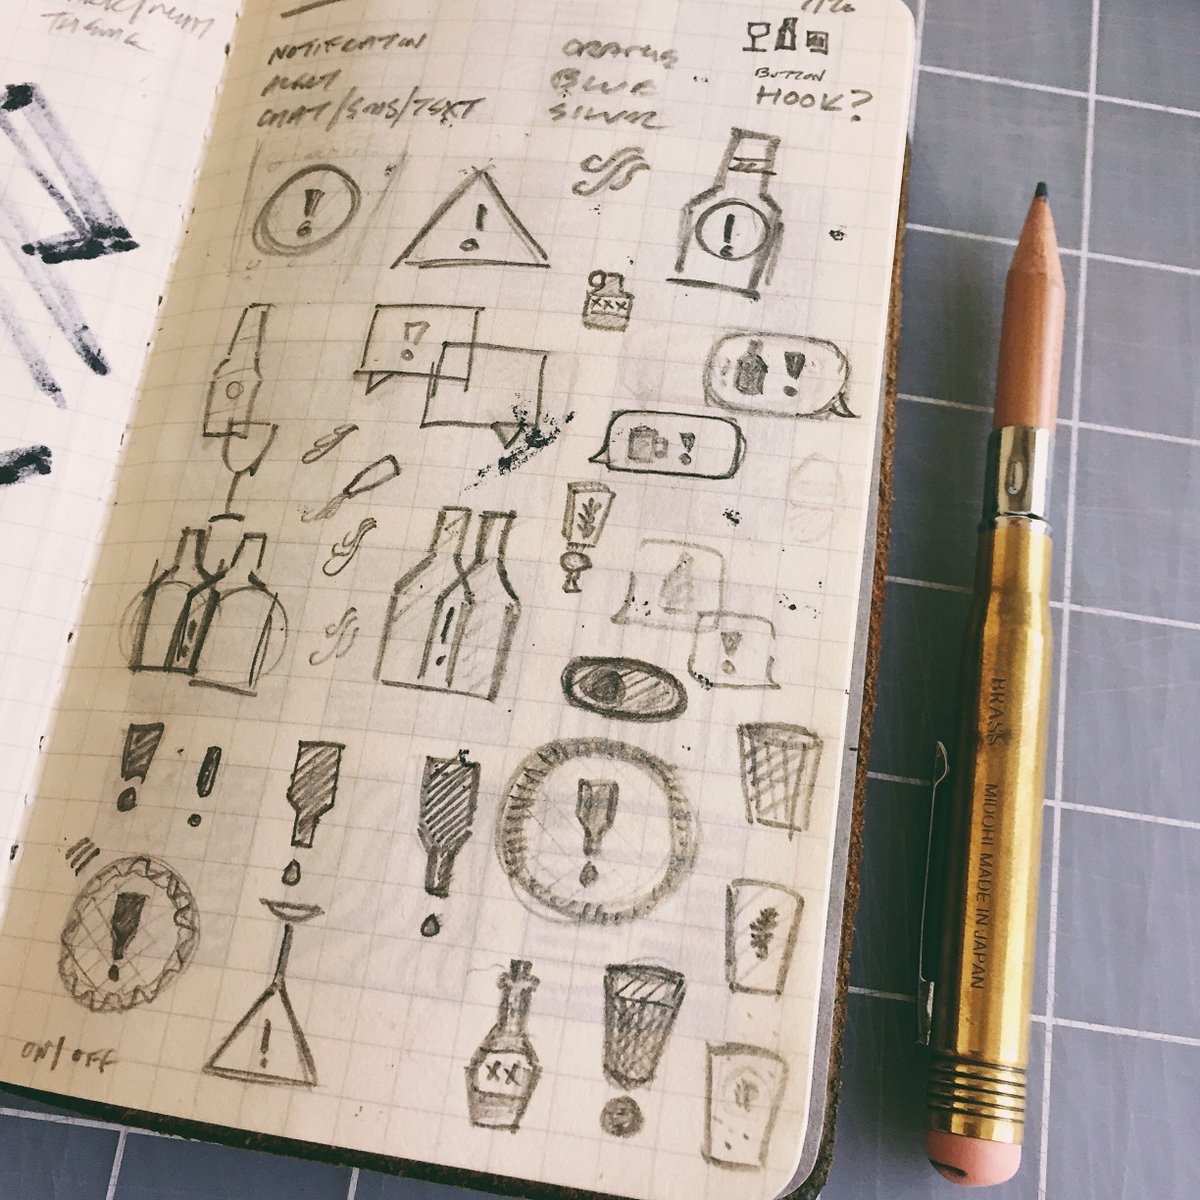 THEME
NOTIFICATION
ALERT
CHAT/SMS/TEXT
ORANGE
BLUE
SILVER
BUTTON
HOOK?
XXX
XX
ON/OFF
BRASS MIDORI MADE IN JAPAN